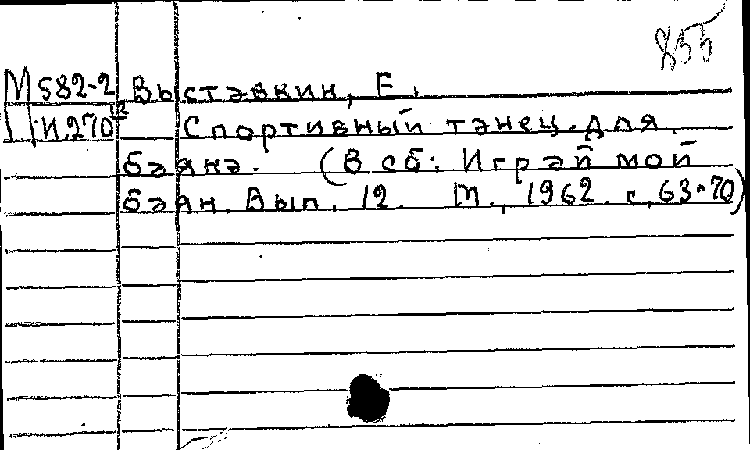 855
М582-2 Выставкин, Е.
И.270 12 Спортивный танец. Для
баяна. (В сб: Играй мой
баян. Вып. 12. М., 1962. с. 63-70)